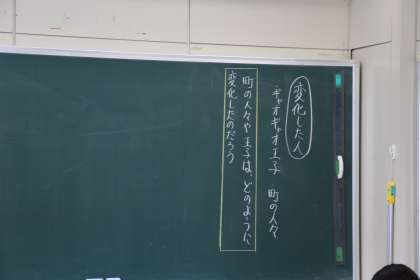 変化した人
ギャオギャオ王子 町の人々
町の人々や王子は、どのように
変化したのだろう